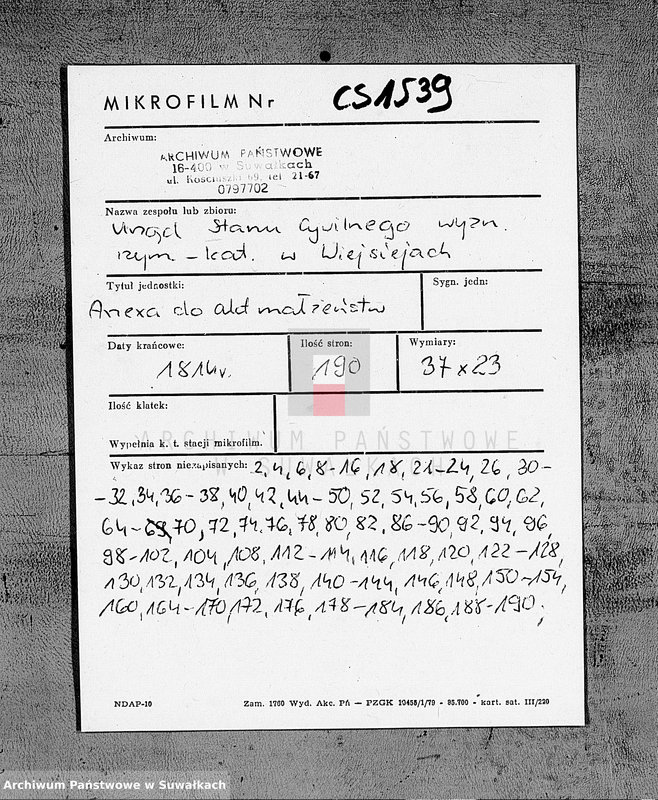 MIKROFILM Nr CS1539
Archiwum:
ARCHIWUM PAŃSTWOWE
16-400 w Suwałkach
ul. Kościuszki 69, tel 21-67
0797702
Nazwa zespołu lub zbioru:
Urząd Stanu Cywilnego wyzn.
rzym-kat. w Wiejsiejach
Tytuł jednostki: Sygn. jedn:
Anexa do akt małżeństw
Daty krańcowe: Ilość stron: Wymiary:
1814r. 190 37 x 23
Ilość klatek:
Wypełnia k. t. stacji mikrofilm.
ARCHIWUM PAŃSTWOWE
W SUWAŁKACH
Wykaz stron niezapisanych: 2, 4, 6, 8-16, 18, 21-24, 26, 30-
-32, 34, 36-38, 40, 42, 44-50, 52, 54, 56, 58, 60, 62,
64-69, 70, 72, 74, 76, 78, 80, 82, 86-90, 92, 94, 96,
98-102, 104, 108, 112-114, 116, 118, 120, 122-128,
130, 132, 134, 136, 138, 140-144, 146, 148, 150-154,
160, 164-170, 172, 176, 178-184, 186, 188-190;
NDAP-10 Zam. 1760 Wyd. Akc. Pń — PZGK 10458/1/79 - 95.700 - kart. sat. III/220
Archiwum Państwowe w Suwałkach